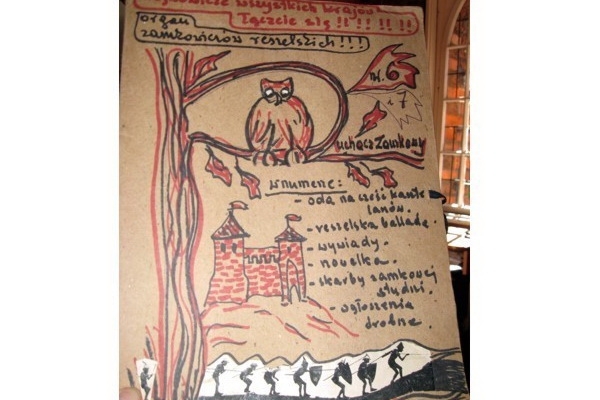 wszystkich krajów
łączcie się !! !! !! !!
organ
zamkowiczów reszelskich!!!
nr. 6
i 7
Puchacz Zamkowy
w numerze:
- oda na cześć kaszte
lanów.
- reszelska ballada.
- wywiady.
- nowelka.
- skarby zamkowej
studni.
- ogłoszenia
drobne.